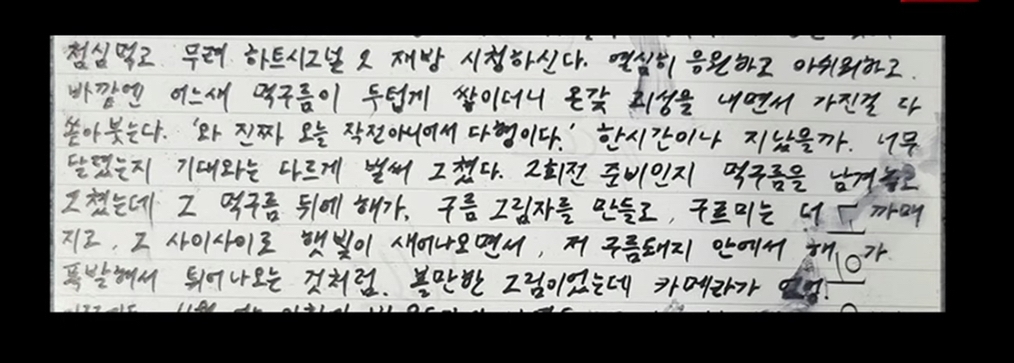 점심먹고 무려 하트시그널 오 재방 시청하신다. 열심히 응원하고 아쉬워하고.
바깥엔 어느새 먹구름이 두텁게 쌓이더니 온갖 괴성을 내면서 가진걸 다
쏟아붓는다. '와 진짜 오늘 작전아니어서 다행이다.' 한시간이나 지났을까. 너무
달렸는지 기대와는 다르게 벌써 그쳤다. 2회전 준비인지 먹구름을 남겨놓고
그쳤는데 그 먹구름 뒤에 해가, 구름 그림자를 만들고, 구르미는 더 까매
지고, 그 사이사이로 햇빛이 새어나오면서, 저 구름돼지 안에서 해가
폭발해서 튀어나오는 것처럼. 볼만한 그림이었는데 카메라가